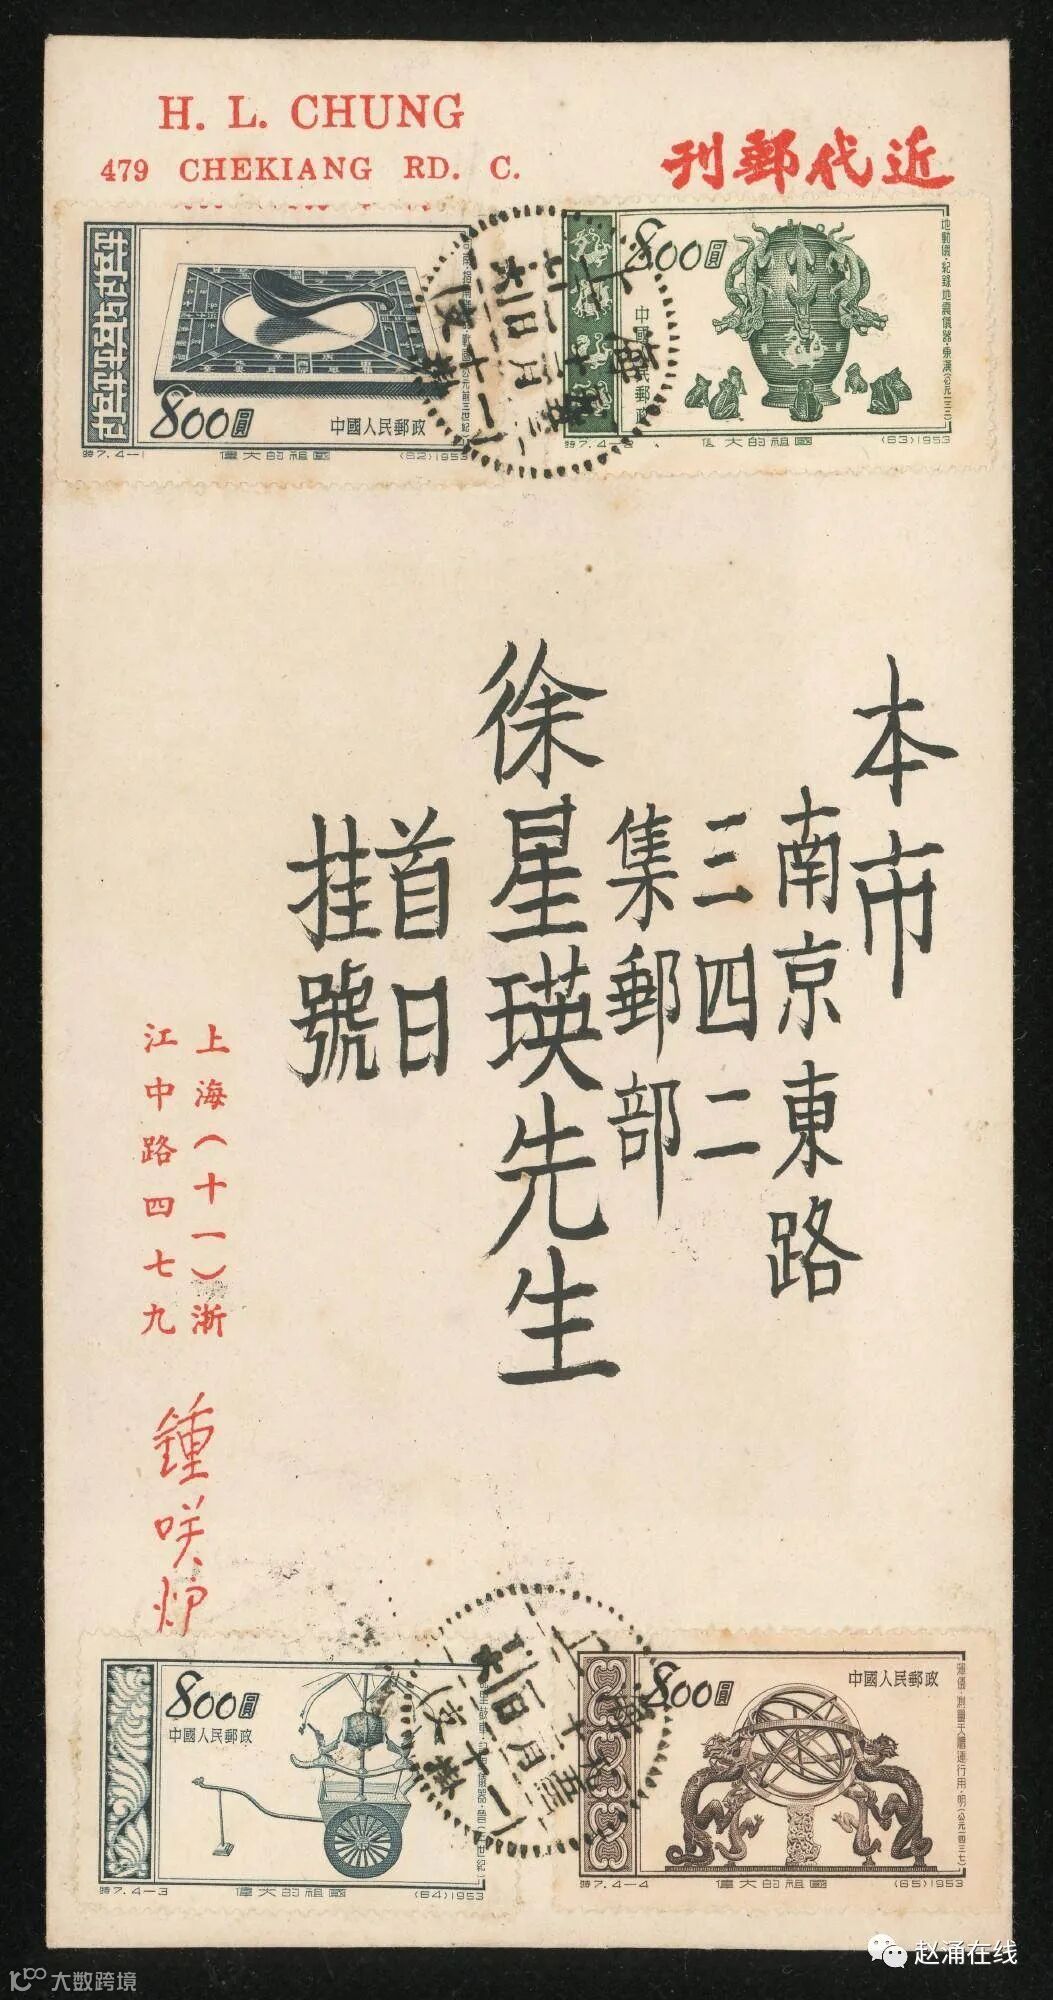 H. L. CHUNG
479 CHEKIANG RD. C.
近代郵刊
800圓
中國人民郵政
特7. 4-1
偉大的祖國
(62) 1953
800圓
中國人民郵政
地動儀·紀錄地震儀器·東漢(公元一三二)
特7. 4-2
偉大的祖國
(63) 1953
上海
本市
南京東路
三四二
集郵部
徐星瑛先生
首日
挂號
上海(十一)浙
江中路四七九
鍾笑炉
800圓
中國人民郵政
特7. 4-3
偉大的祖國
(64) 1953
800圓
中國人民郵政
渾儀·測量天體運行用·明(公元一四三七)
特7. 4-4
偉大的祖國
(65) 1953
赵涌在线
大数跨境